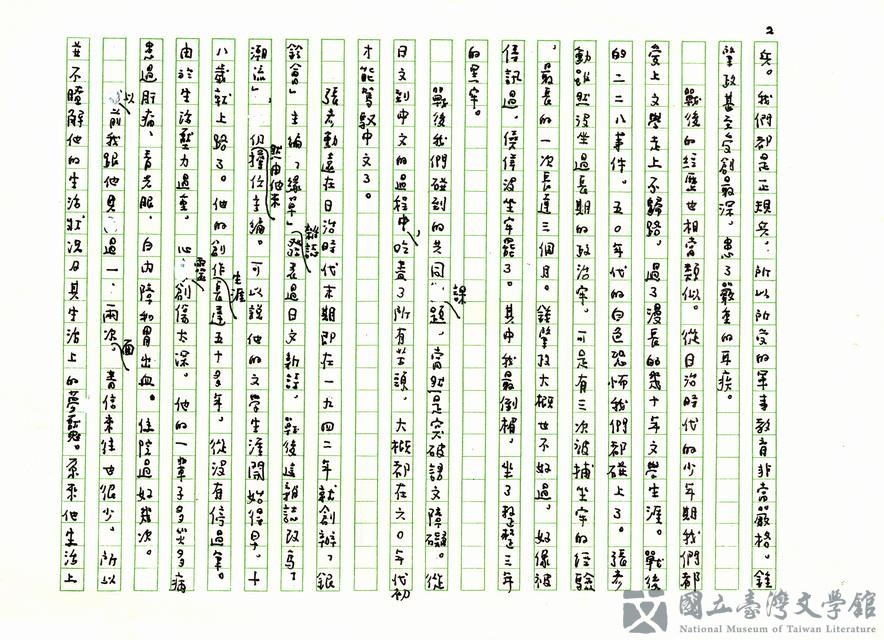 2
兵。我們都是正規兵，所以所受的軍事教育非常嚴格。鍾
肇政甚至受創最深，患了嚴重的耳疾。
戰後的經歷也相當類似。從日治時代的少年期我們都
愛上文學走上不歸路，過了漫長的幾十年文學生涯。戰後
的二二八事件。五〇年代的白色恐怖我們都碰上了。張彥
勳雖然沒坐過長期的政治牢，可是有三次被捕坐牢的經驗
，最長的一次長達三個月。鍾肇政大概也不好過，好像被
傳訊過，僥倖沒坐牢罷了。其中我最倒楣，坐了整整三年
的黑牢。
戰後我們碰到的共同課題，當然是突破語文障礙。從
日文到中文的過程中，吃盡了所有苦頭，大概都在六〇年代初
才能駕馭中文了。
張彥勳遠在日治時代末期即在一九四二年就創辦「銀
鈴會」主編「緣草」雜誌發表過日文新詩。戰後這雜誌改為「
潮流」，仍然由他來擔任主編。可以說他的文學生涯開始得早，十
八歲就上路了。他的創作生涯長達五十多年，從沒有停過筆。
由於生活壓力過重，心靈創傷太深。他的一輩子多災多病
患過肝病、青光眼、白內障和胃出血。住院過好幾次。
以前我跟他見過一、兩次面。書信來往也很少。所以
並不瞭解他的生活狀況日其生活上的夢魘。原來他生活上
國立臺灣文學館
National Museum of Taiwan Literature